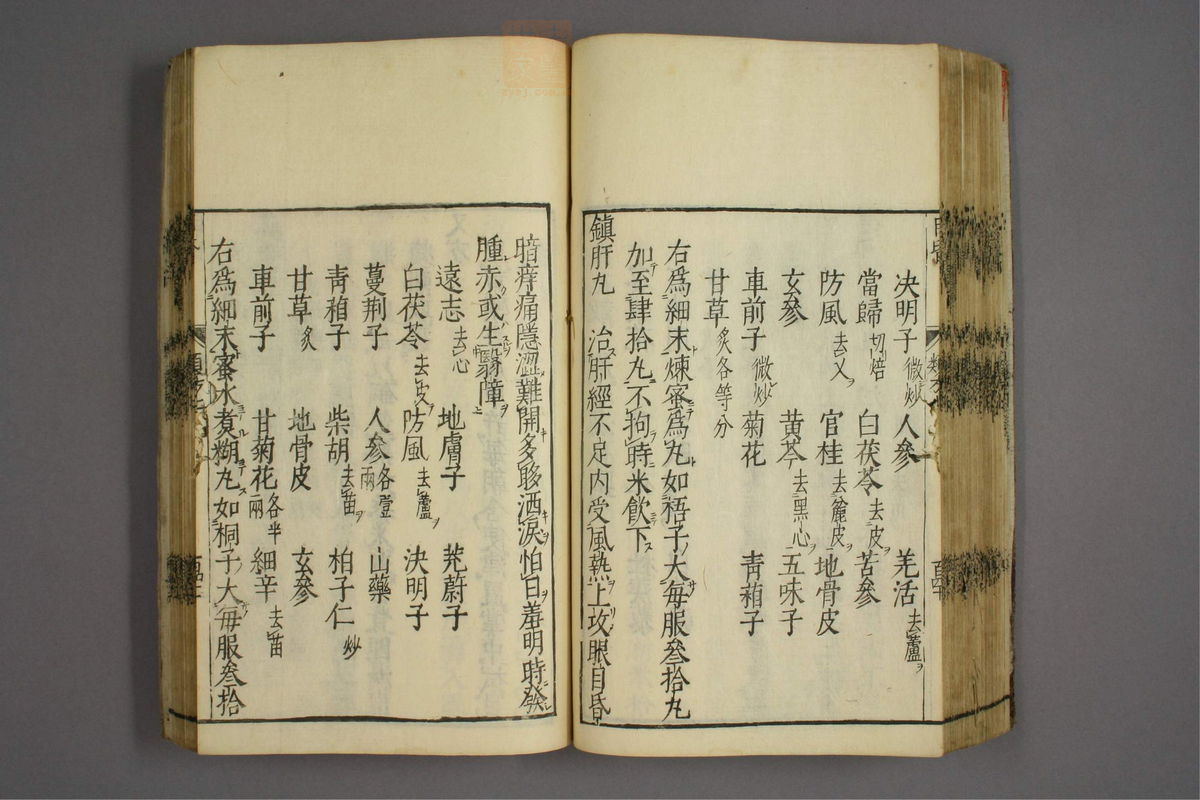 決明子微炒 人參 羌活去蘆ヲ
當歸切焙 白茯苓去皮ヲ 苦參
防風去乂ヲ 官桂去麄皮ヲ 地骨皮
玄參 黄芩去黑心ヲ 五味子
車前子微炒 菊花 青葙子
甘草炙各等分
右爲細末煉蜜爲丸如梧子大每服叄拾丸
加至肆拾丸不拘時米飲下
鎮肝丸 治肝經不足内受風熱上攻眼目昏
暗痒痛隱澀難開多眵洒淚怕日羞明時發
腫赤或生翳障
遠志去心 地膚子 茺蔚子
白茯苓去皮ヲ 防風去蘆ヲ 決明子
蔓荆子 人參各壹兩 山藥
青葙子 柴胡去苗ヲ 柏子仁炒
甘草炙 地骨皮 玄參
車前子 甘菊花各半兩 細辛去苗
右爲細末蜜水煮糊丸如桐子大每服叄拾